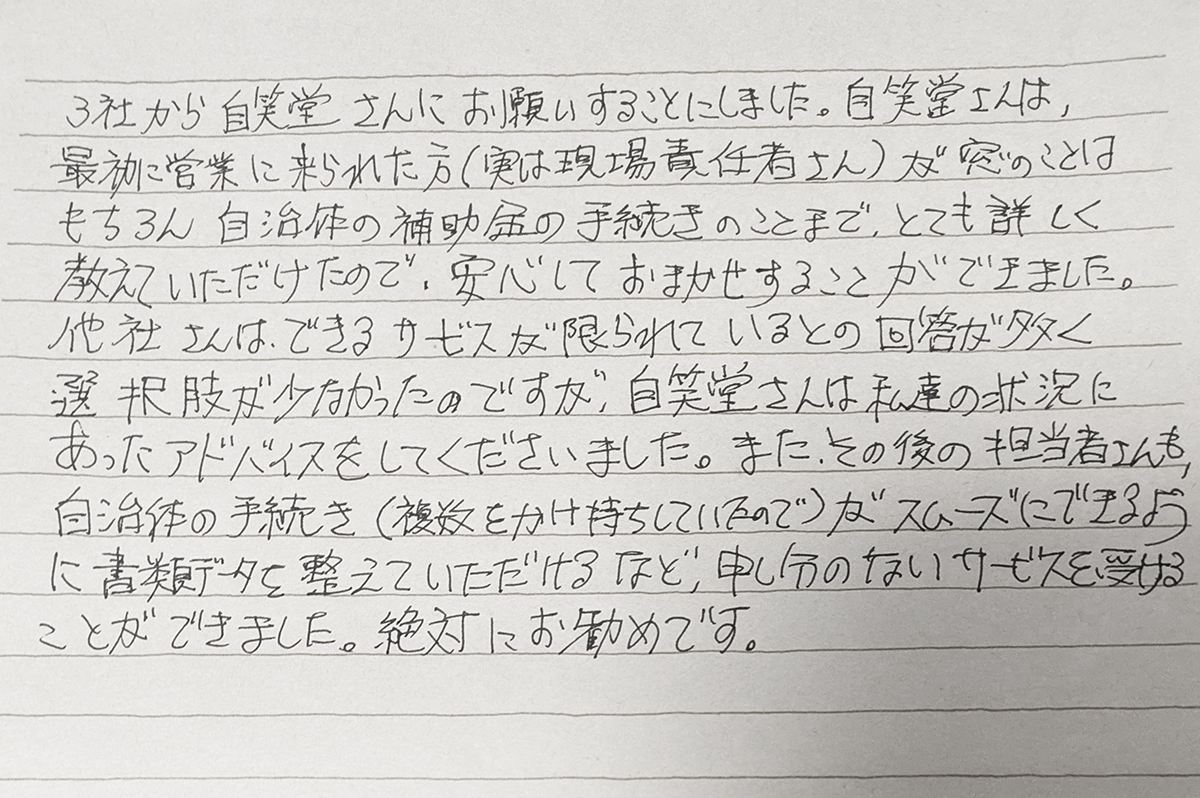 3社から自笑堂さんにお願いすることにしました。自笑堂さんは,
最初に営業に来られた方(実は現場責任者さん)が窓のことは
もちろん自治体の補助金の手続きのことまで、とても詳しく
教えていただけたので、安心しておまかせすることができました。
他社さんは、できるサービスが限られているとの回答が多く
選択肢が少なかったのですが、自笑堂さんは私達の状況に
あったアドバイスをしてくださいました。また、その後の担当者さんも,
自治体の手続き(複数をかけ持ちしていたので)がスムーズにできるよう
に書類データを整えていただけるなど、申し分のないサービスを受ける
ことができました。絶対にお勧めです。